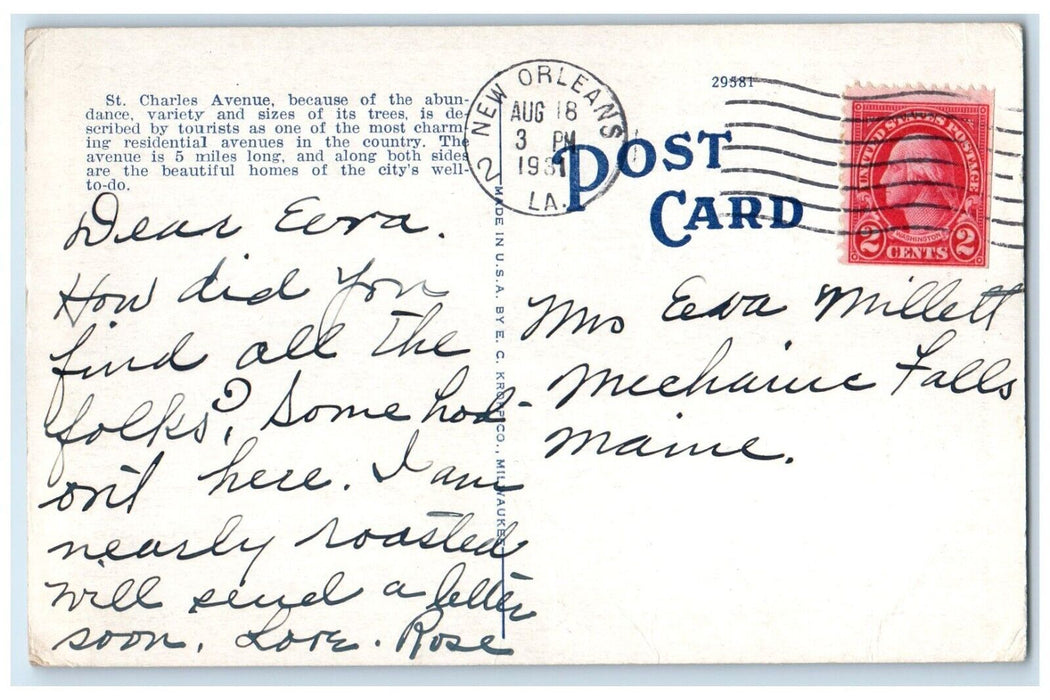 St. Charles Avenue, because of the abun-
dance, variety and sizes of its trees, is de-
scribed by tourists as one of the most charm-
ing residential avenues in the country. The
avenue is 5 miles long, and along both sides
are the beautiful homes of the city's well-
to-do.
Dear Eeva.
How did You
find all the
folks? Some hot
on't here. I am
nearly roasted
will send a letter
soon. Love. Rose
MADE IN U.S.A. BY E. C. KROPP CO., MILWAUKEE
NEW ORLEANS
AUG 18
3 PM
1931
LA.
2
29581
POST
CARD
UNITED STATES POSTAGE
WASHINGTON
2 CENTS 2
Mrs Eeva Millett
Mechanic Falls
Maine.